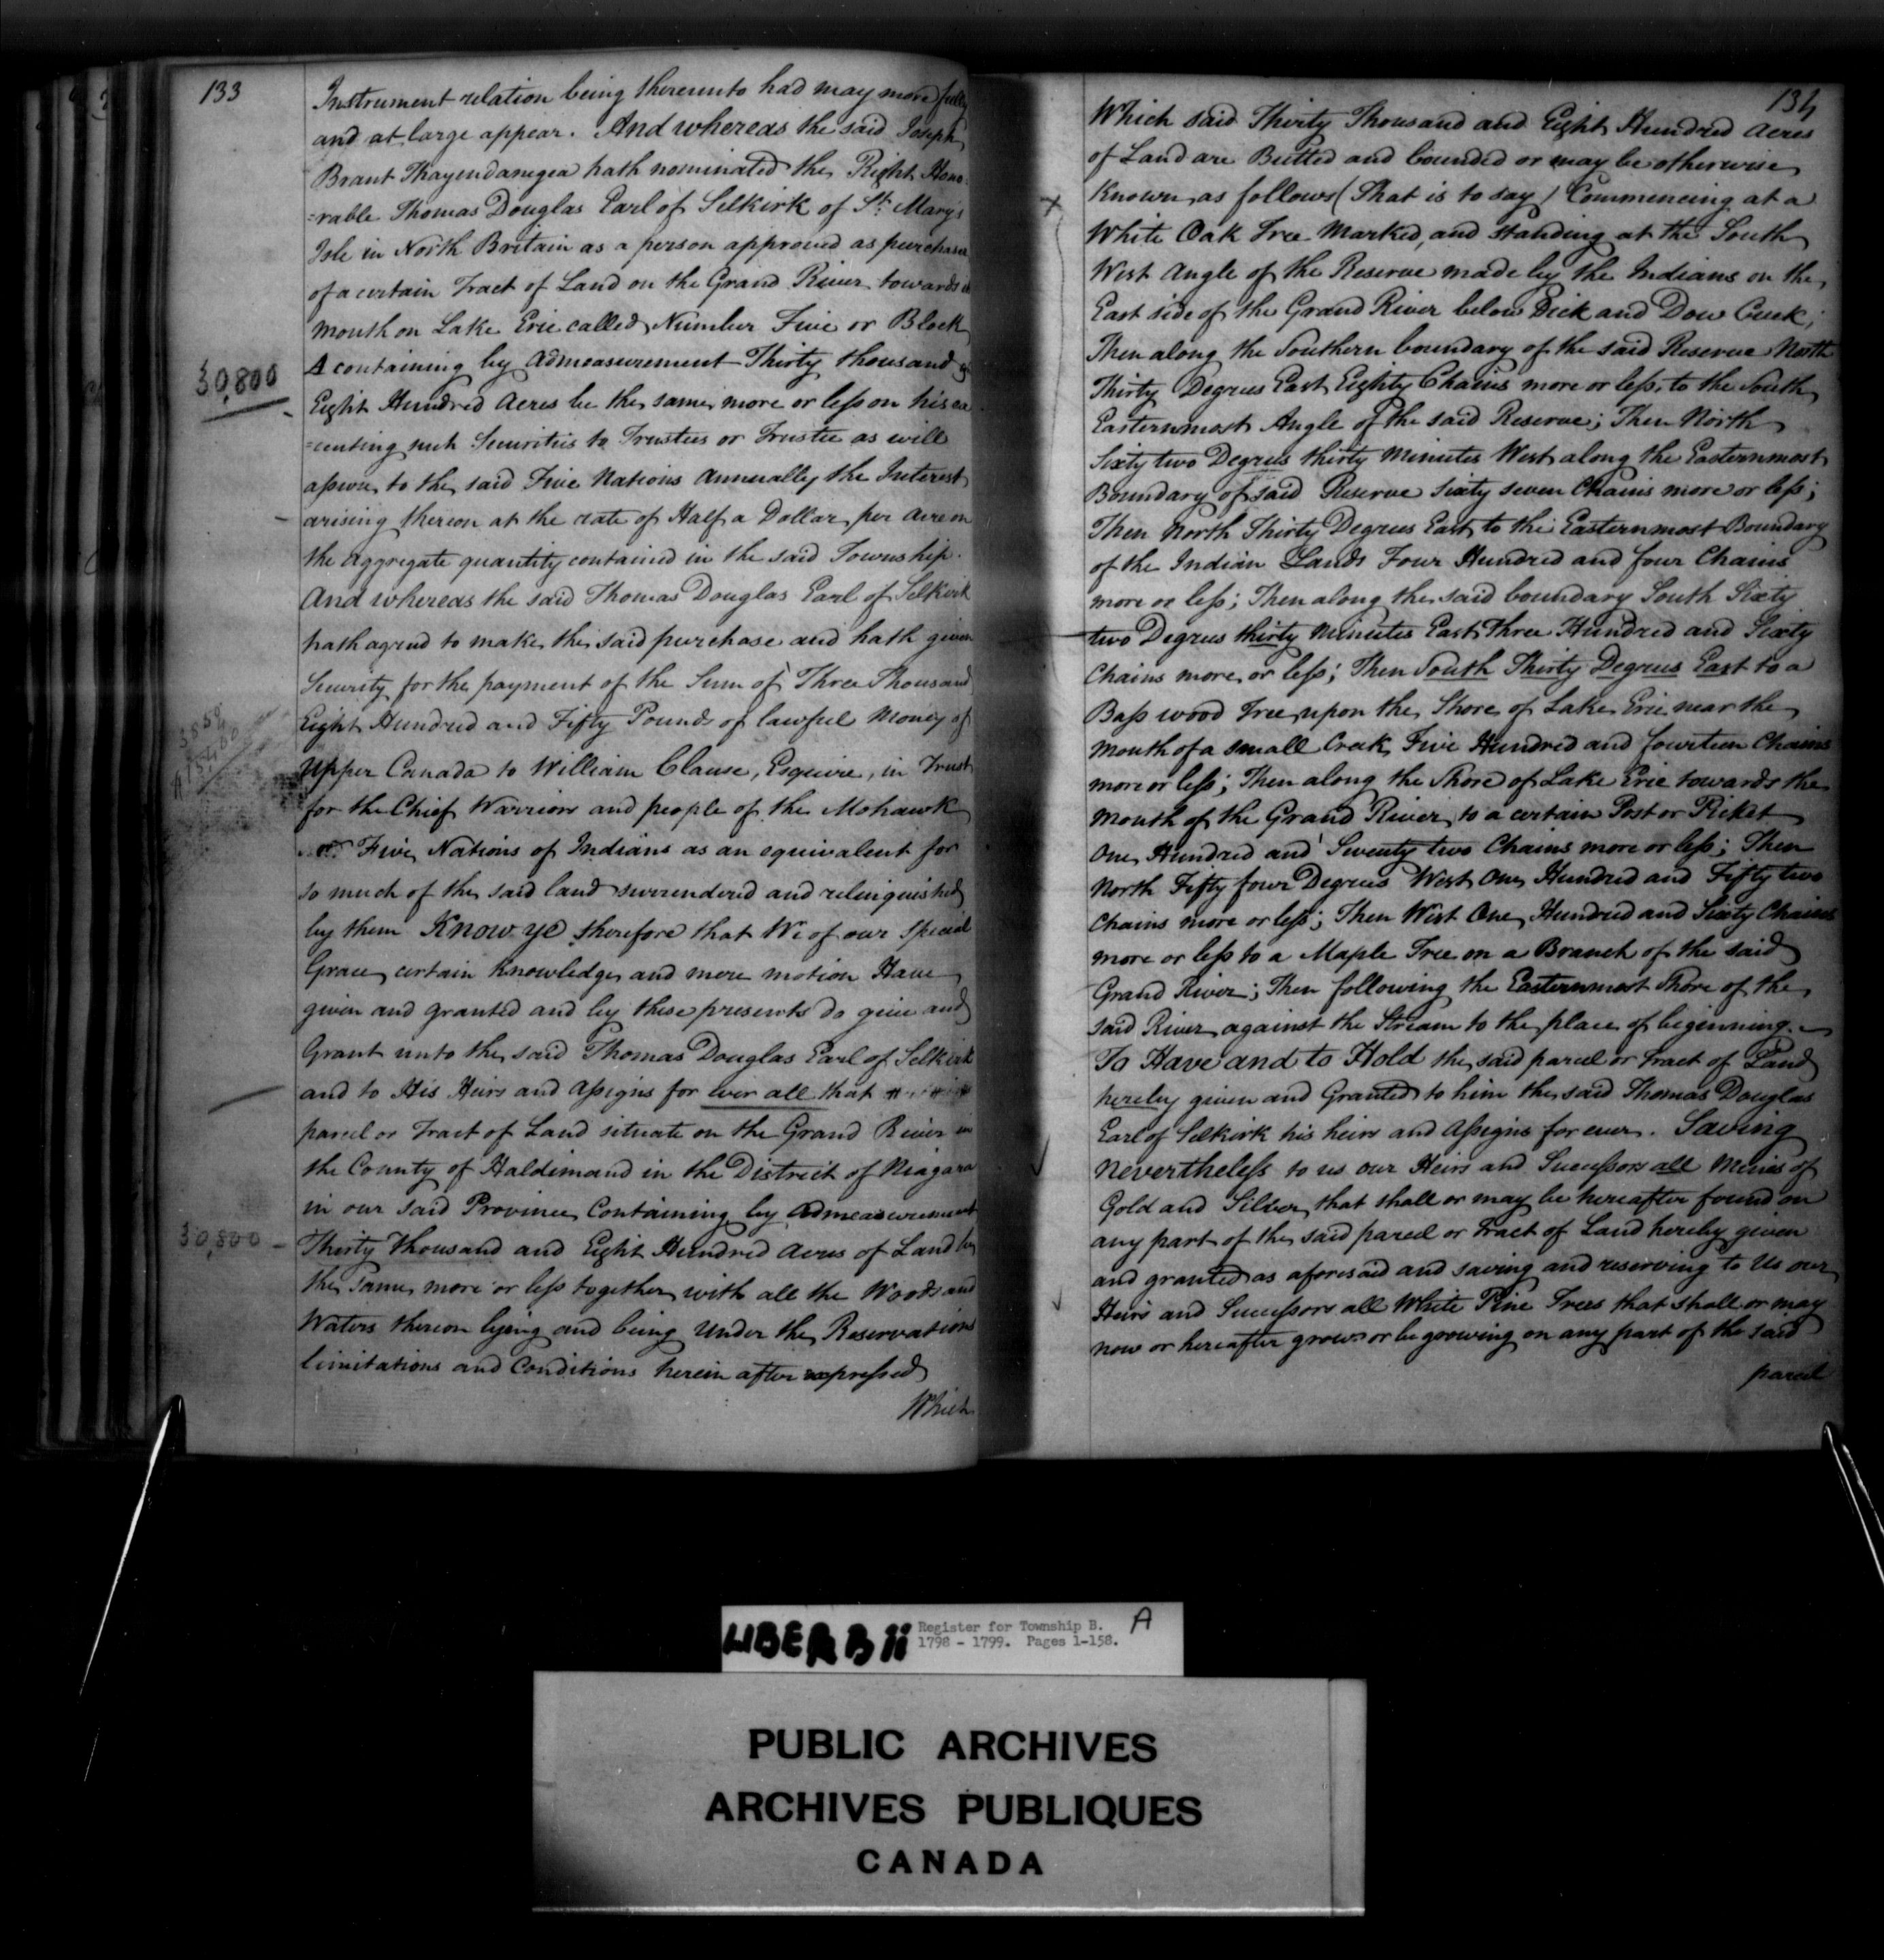 133
Instrument relation being thereunto had may more fully
and at large appear. And whereas the said Joseph
Brant Thayendanegea hath nominated the Right Hono-
=rable Thomas Douglas Earl of Selkirk of St. Mary's
Isle in North Britain as a person approved as purchaser
of a certain Tract of Land on the Grand River towards it
mouth on Lake Erie called Number Five or Block
30,800
A containing by admeasurement Thirty thousand &
Eight Hundred Acres be the same more or leſs on his ex
=cuting such Securities to Trustees or Trustee as will
aſsure to the said Five Nations Annually the Interest
arising thereon at the rate of Half a Dollar per Acre on
the Aggregate quantity contained in the said Township.
And whereas the said Thomas Douglas Earl of Selkirk
hath agreed to make the said purchase and hath given
Security for the payment of the Sum of Three Thousand
Eight Hundred and Fifty Pounds of lawful Money of
Upper Canada to William Clause, Esquire, in Trust
for the Chief Warriors and people of the Mohawk
or Five Nations of Indians as an equivalent for
so much of the said land surrendered and relinquished
by them Know ye therefore that We of our Special
Grace, certain Knowledge and mere motion Have
given and granted and by these presents do give and
Grant unto the said Thomas Douglas Earl of Selkirk
and to His Heirs and Aſsigns for ever all that
parcel or Tract of Land situate on the Grand River in
the County of Haldimand in the District of Niagara
in our said Province Containing by Admeasurement
30,800
Thirty Thousand and Eight Hundred Acres of Land be
the same more or leſs together with all the Woods and
Waters thereon lying and being Under the Reservations
limitations and Conditions herein after expreſsed
Which
134
Which said Thirty Thousand and Eight Hundred Acres
of Land are Butted and bounded or may be otherwise
Known as follows (That is to say) Commencing at a
White Oak Tree Marked, and standing at the South
West Angle of the Reserve made by the Indians on the
East side of the Grand River below Dick and Dow Creek;
Then along the Southern boundary of the said Reserve North
Thirty Degrees East Eighty Chains more or leſs, to the South
Easternmost Angle of the said Reserve; Then North
Sixty two Degrees thirty Minutes West along the Easternmost
Boundary of said Reserve Sixty seven Chains more or leſs;
Then North Thirty Degrees East to the Easternmost Boundary
of the Indian Lands Four Hundred and four Chains
more or leſs; Then along the said boundary South Sixty
two Degrees thirty Minutes East Three Hundred and Sixty
Chains more or leſs; Then South Thirty Degrees East to a
Baſs wood Tree upon the Shore of Lake Erie near the
Mouth of a small Creek Five Hundred and fourteen Chains
more or leſs; Then along the Shore of Lake Erie towards the
Mouth of the Grand River to a certain Post or Picket
One Hundred and Seventy two Chains more or leſs; Then
North Fifty four Degrees West One Hundred and Fifty two
Chains more or leſs; Then West One Hundred and Sixty Chains
more or leſs to a Maple Tree on a Branch of the said
Grand River; Then following the Easternmost Shore of the
said River against the Stream to the place of beginning.
To Have and to Hold the said parcel or Tract of Land
hereby given and Granted to him the said Thomas Douglas
Earl of Selkirk his heirs and Aſsigns for ever. Saving
Nevertheleſs to us our Heirs and Succeſsors all Mines of
Gold and Silver that shall or may be hereafter found on
any part of the said parcel or Tract of Land hereby given
and granted as aforesaid and saving and reserving to Us our
Heirs and Succeſsors all White Pine Trees that shall or may
now or hereafter grow or be growing on any part of the said
parcel
LIBER B ii Register for Township B. A
1798 - 1799. Pages 1-158.
PUBLIC ARCHIVES
ARCHIVES PUBLIQUES
CANADA